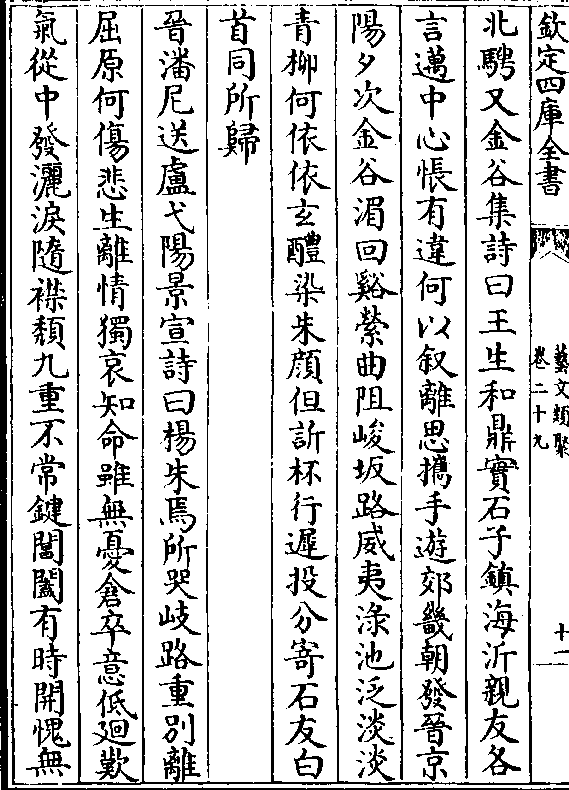 欽定四庫全書
藝文類聚
卷二十九
十一
北騁又金谷集詩曰王生和鼎實石子鎮海沂親友各
言邁中心悵有違何以叙離思攜手遊郊畿朝發晉京
陽夕次金谷湄回谿縈曲阻峻坂路威夷淥池泛淡淡
青柳何依依玄醴染朱顔但訴杯行遲投分寄石友白
首同所歸
晉潘尼送盧弋陽景宣詩曰楊朱焉所哭歧路重别離
屈原何傷悲生離情獨哀知命雖無憂倉卒意低迴歎
氣從中發灑淚隨襟頽九重不常鍵閶闔有時開愧無